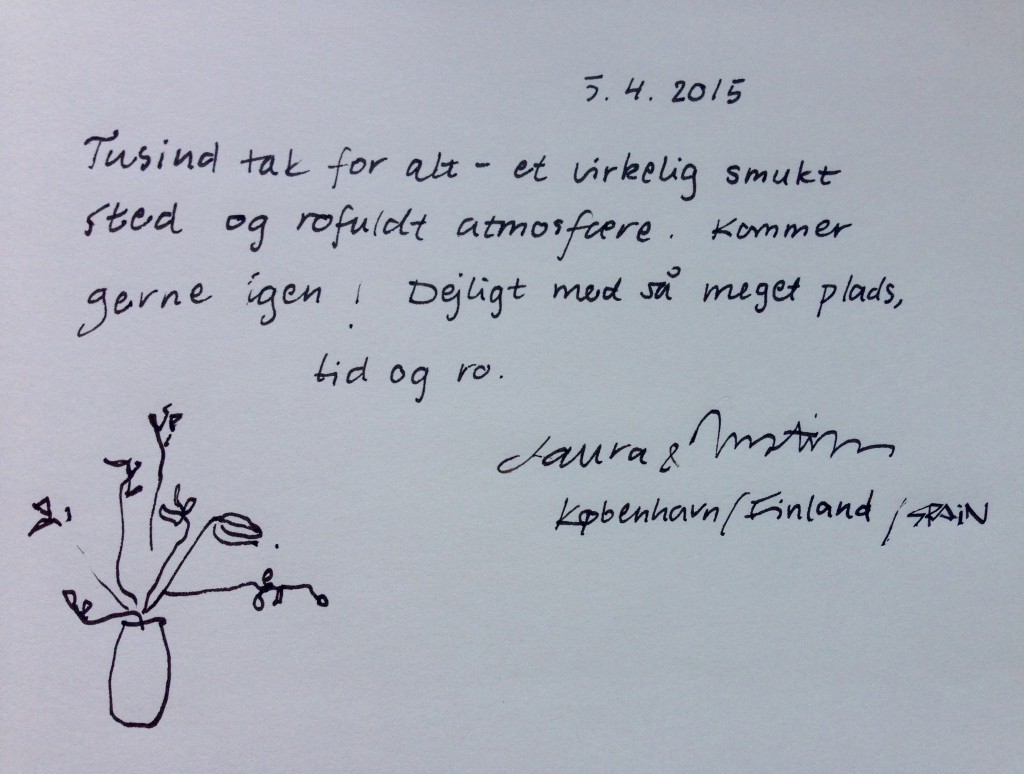 5. 4. 2015
Tusind tak for alt - et virkelig smukt
sted og rofuldt atmosfære. Kommer
gerne igen! Dejligt med så meget plads,
tid og ro.
Laura &
København/Finland/SPAIN